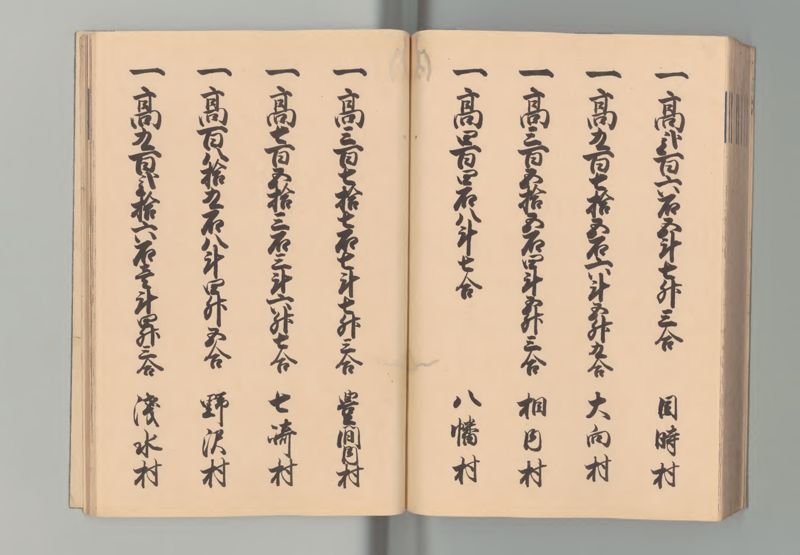 一高弐百六石五斗七升三合 目時村
一高九百七拾五石六斗五升九合 大向村
一高三百五拾五石四斗五升三合 相内村
一高四百四石八斗七合 八幡村
一高三百七拾七石七斗七升三合 豊間内村
一高七百五拾三石三斗六升七合 七崎村
一高百八拾九石八斗四升五合 野沢村
一高九百弐拾六石壱斗四升三合 浅水村